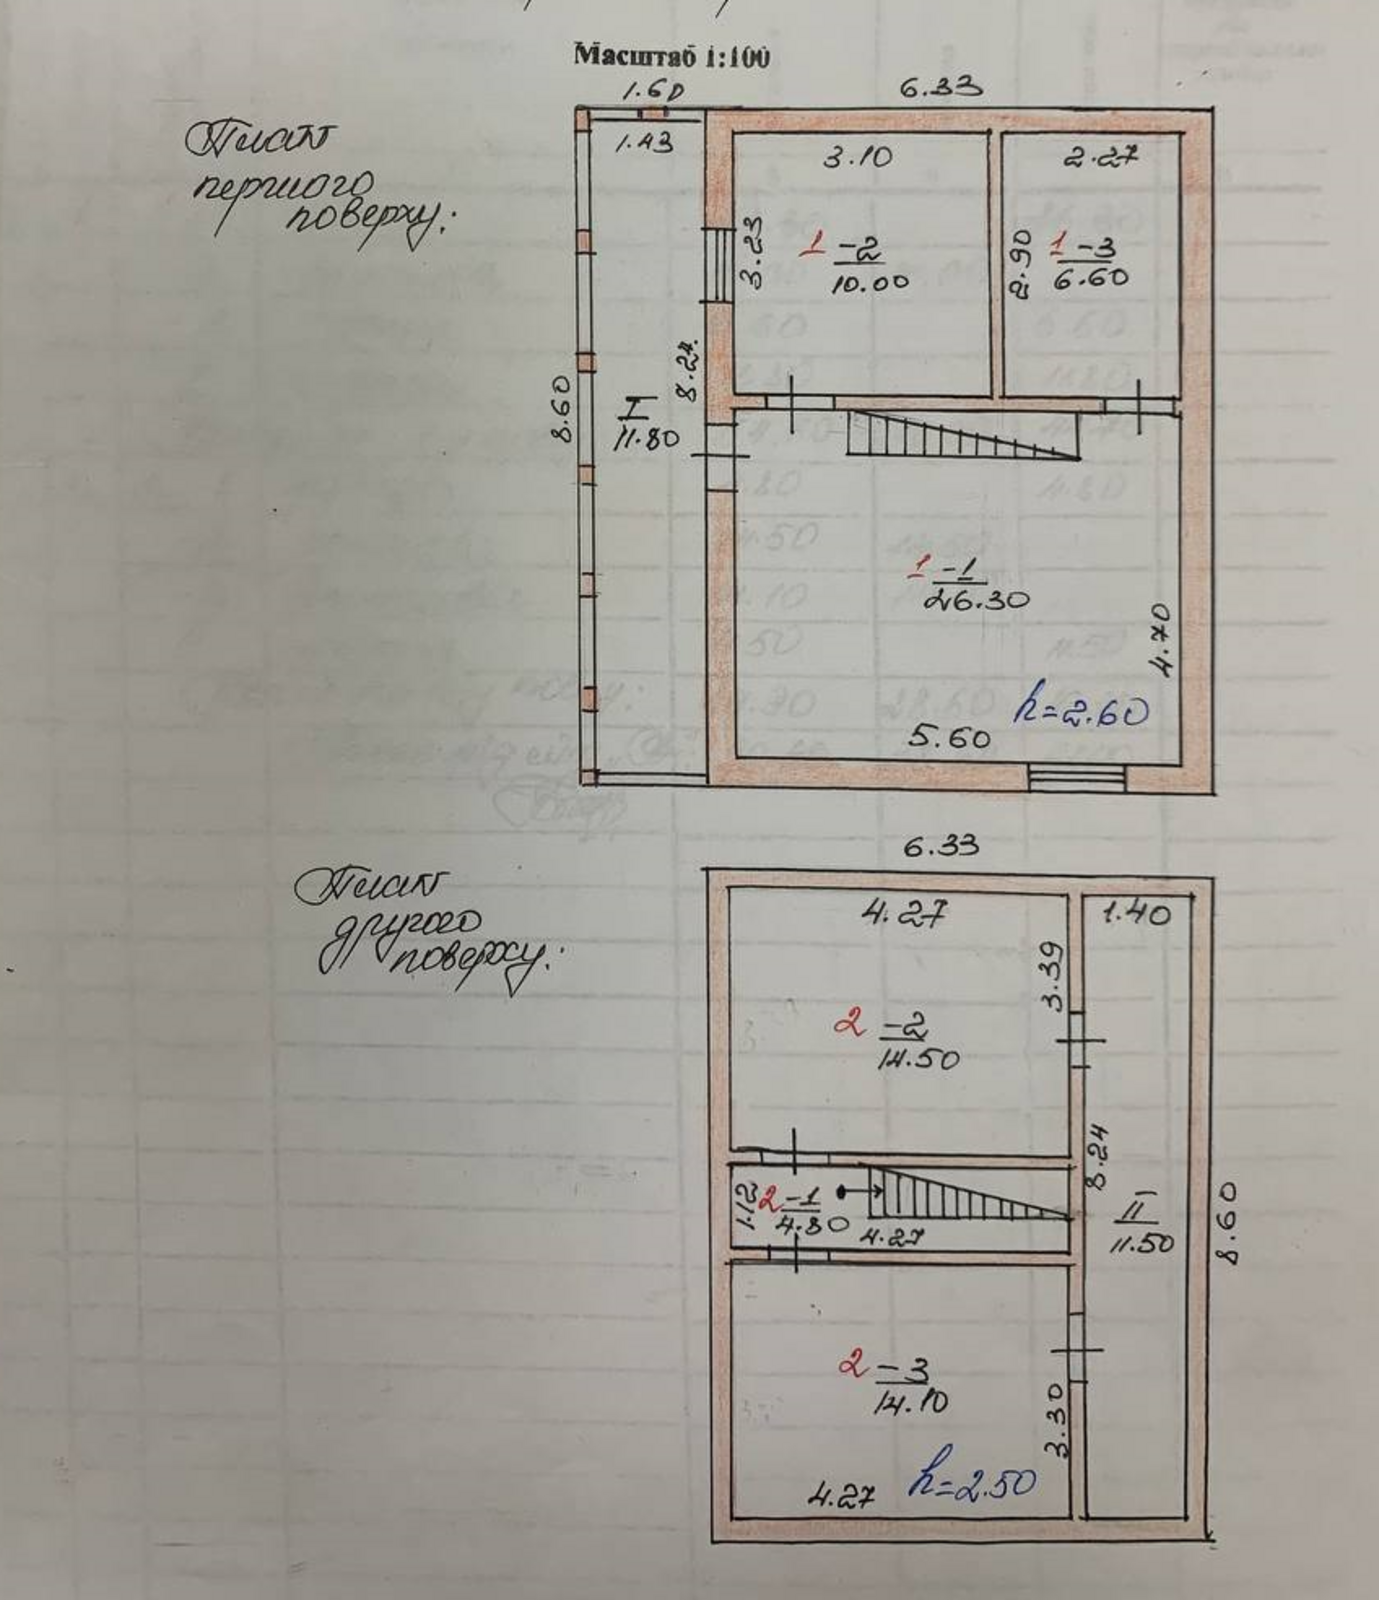 Масштаб 1:100
1.60
6.33
План
першого
поверху:
1.43
3.10
2.27
3.23
1 -2
10.00
2.90
1 -3
6.60
8.24
8.60
I
11.80
1 -1
26.30
4.70
h=2.60
5.60
6.33
План
другого
поверху:
4.27
1.40
3.39
2 -2
14.50
8.24
1.12
2 -1
4.80
4.27
II
11.50
8.60
2 -3
14.10
3.30
4.27
h=2.50